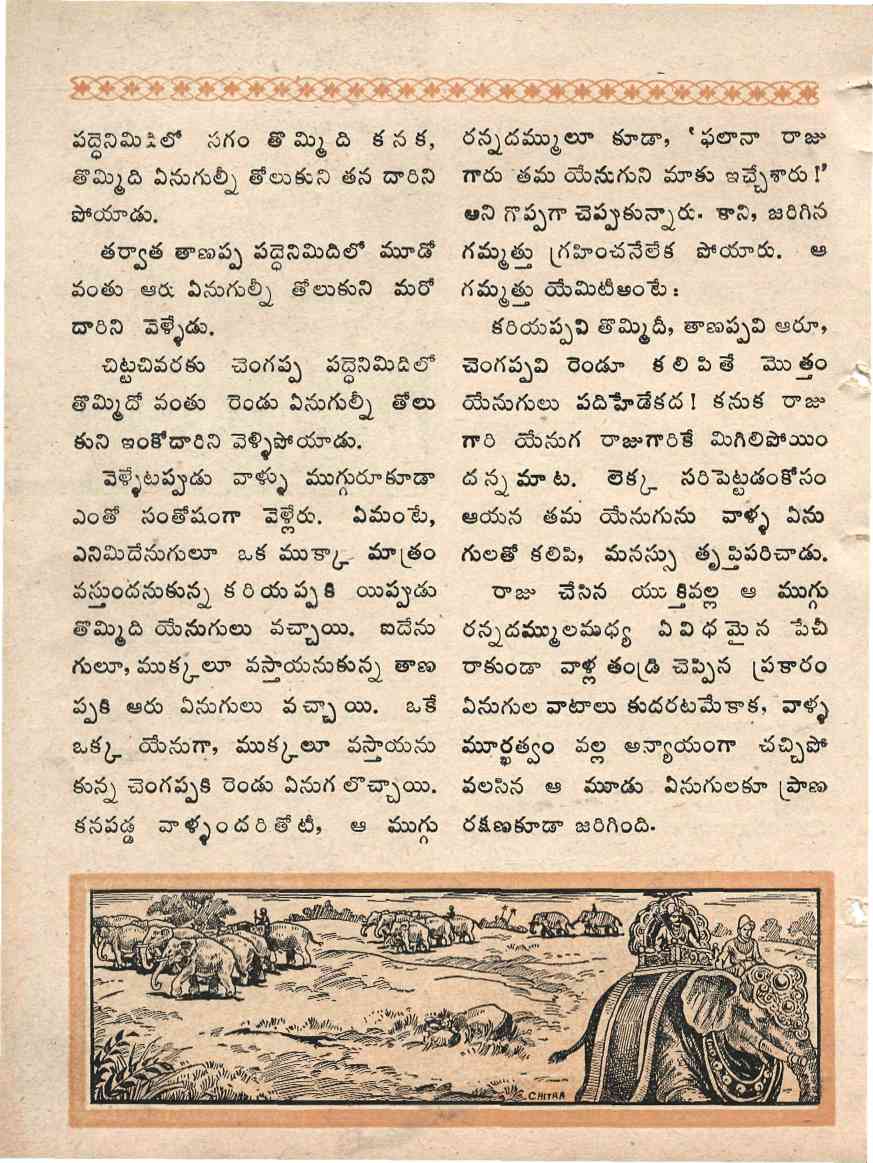 పద్ధెనిమిదిలో సగం తొమ్మిది కనక,
తొమ్మిది ఏనుగుల్నీ తోలుకుని తన దారిని
పోయాడు.
తర్వాత తాణప్ప పద్ధెనిమిదిలో మూడో
వంతు ఆరు ఏనుగుల్నీ తోలుకుని మరో
దారిని వెళ్ళేడు.
చిట్టచివరకు చెంగప్ప పద్ధెనిమిదిలో
తొమ్మిదో వంతు రెండు ఏనుగుల్నీ తోలు
కుని ఇంకోదారిని వెళ్ళిపోయాడు.
వెళ్ళేటప్పుడు వాళ్ళు ముగ్గురూకూడా
ఎంతో సంతోషంగా వెళ్లేరు. ఏమంటే,
ఎనిమిదేనుగులూ ఒక ముక్కా మాత్రం
వస్తుందనుకున్న కరియప్పకి యిప్పుడు
తొమ్మిది యేనుగులు వచ్చాయి. ఐదేను
గులూ, ముక్కలూ వస్తాయనుకున్న తాణ
ప్పకి ఆరు ఏనుగులు వచ్చాయి. ఒకే
ఒక్క యేనుగా, ముక్కలూ వస్తాయను
కున్న చెంగప్పకి రెండు ఏనుగ లొచ్చాయి.
కనపడ్డ వాళ్ళందరితోటీ, ఆ ముగ్గు
రన్నదమ్ములూ కూడా, ‘ఫలానా రాజు
గారు తమ యేనుగుని మాకు ఇచ్చేశారు!’
అని గొప్పగా చెప్పుకున్నారు. కాని, జరిగిన
గమ్మత్తు గ్రహించనేలేక పోయారు. ఆ
గమ్మత్తు యేమిటీఅంటే:
కరియప్పవి తొమ్మిదీ, తాణప్పవి ఆరూ,
చెంగప్పవి రెండూ కలిపితే మొత్తం
యేనుగులు పదిహేడేకద! కనుక రాజు
గారి యేనుగ రాజుగారికే మిగిలిపోయిం
దన్నమాట. లెక్క సరిపెట్టడంకోసం
ఆయన తమ యేనుగును వాళ్ళ ఏను
గులతో కలిపి, మనస్సు తృప్తిపరిచాడు.
రాజు చేసిన యుక్తివల్ల ఆ ముగ్గు
రన్నదమ్ములమధ్య ఏవిధమైన పేచీ
రాకుండా వాళ్ల తండ్రి చెప్పిన ప్రకారం
ఏనుగుల వాటాలు కుదరటమేకాక, వాళ్ళ
మూర్ఖత్వం వల్ల అన్యాయంగా చచ్చిపో
వలసిన ఆ మూడు ఏనుగులకూ ప్రాణ
రక్షణకూడా జరిగింది.
CHITRA